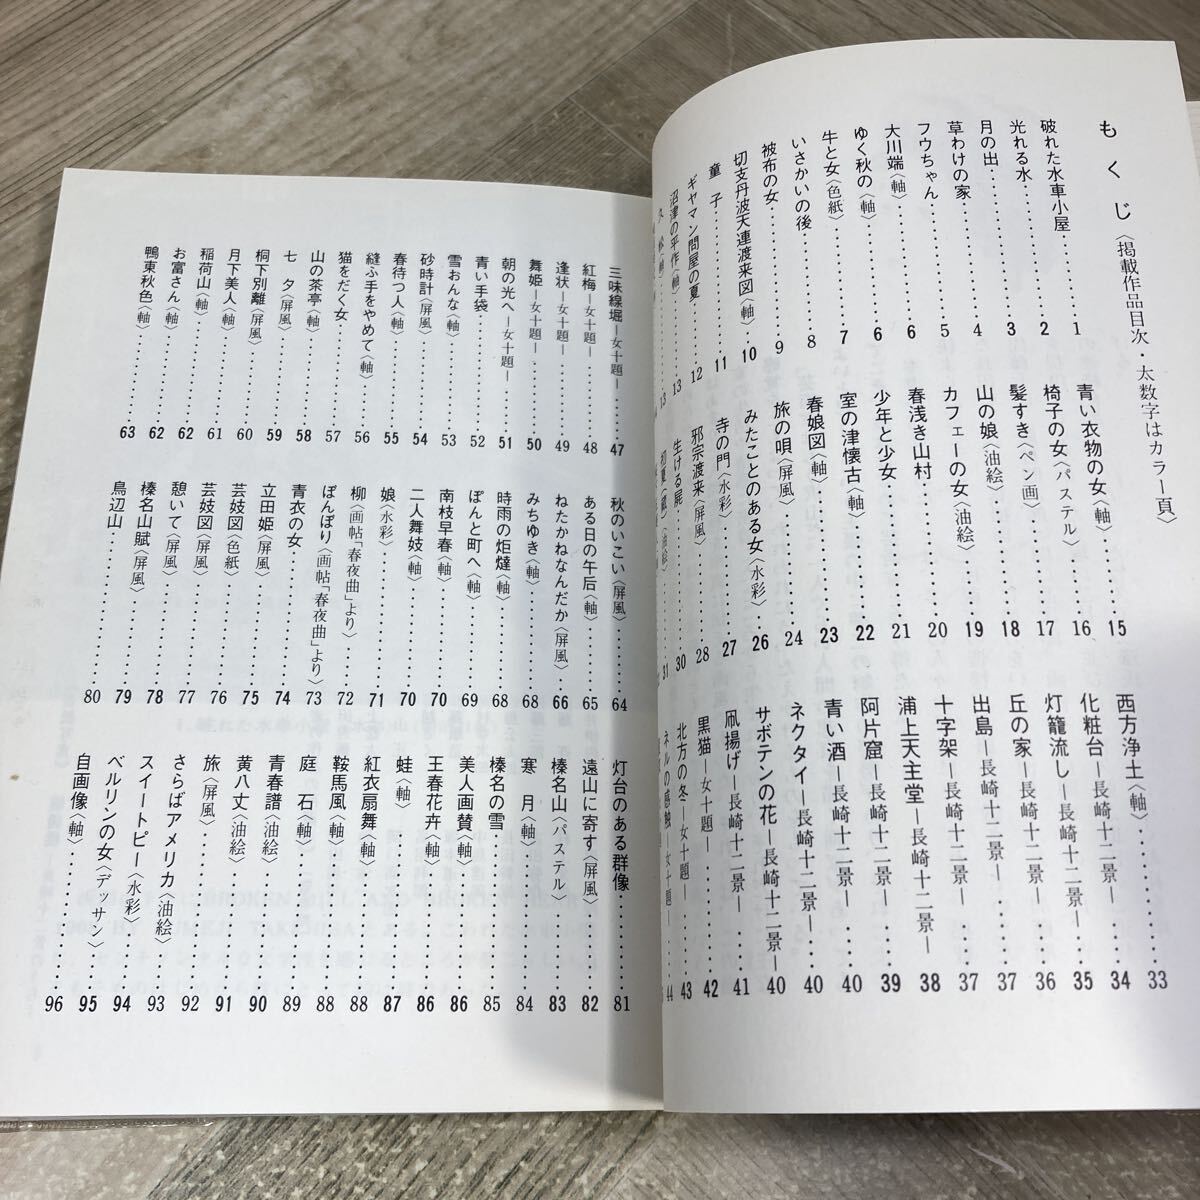 もくじ〈掲載作品目次・太数字はカラー頁〉
破れた水車小屋……1
光れる水……2
月の出……3
草わけの家……4
フウちゃん……5
大川端〈軸〉……6
ゆく秋の〈軸〉……6
牛と女〈色紙〉……7
いさかいの後……8
被布の女……9
切支丹波天連渡来図〈軸〉……10
童子……11
ギヤマン問屋の夏……12
沼津の平作〈軸〉……13
青い衣物の女〈軸〉……15
椅子の女〈パステル〉……16
髪すき〈ペン画〉……17
山の娘〈油絵〉……18
カフェーの女〈油絵〉……19
春浅き山村……20
少年と少女……21
室の津懐古〈軸〉……22
春娘図〈軸〉……23
旅の唄〈屏風〉……24
みたことのある女〈水彩〉……26
寺の門〈水彩〉……27
邪宗渡来〈屏風〉……28
生ける屍……30
西方浄土〈軸〉……33
化粧台―長崎十二景―……34
灯籠流し―長崎十二景―……35
丘の家―長崎十二景―……36
出島―長崎十二景―……37
十字架―長崎十二景―……37
浦上天主堂―長崎十二景―……38
阿片窟―長崎十二景―……39
青い酒―長崎十二景―……40
ネクタイ―長崎十二景―……40
サボテンの花―長崎十二景―……40
凧揚げ―長崎十二景―……41
黒猫―女十題―……42
北方の冬―女十題―……43
ネルの感触―女十題―……44
三味線堀―女十題―……47
紅梅―女十題―……48
逢状―女十題―……49
舞姫―女十題―……50
朝の光へ―女十題―……51
青い手袋……52
雪おんな〈軸〉……53
砂時計〈屏風〉……54
春待つ人〈軸〉……55
縫ふ手をやめて〈軸〉……56
猫をだく女……57
山の茶亭〈軸〉……58
七夕〈屏風〉……59
桐下別離〈屏風〉……60
月下美人〈軸〉……61
稲荷山〈軸〉……62
お富さん〈軸〉……62
鴨東秋色〈軸〉……63
秋のいこい〈屏風〉……64
ある日の午后〈軸〉……65
ねたかねなんだか〈屏風〉……66
みちゆき〈軸〉……68
時雨の炬燵〈軸〉……68
ぽんと町へ〈軸〉……69
南枝早春〈軸〉……70
二人舞妓〈軸〉……70
娘〈水彩〉……71
柳〈画帖「春夜曲」より〉……72
ぼんぼり〈画帖「春夜曲」より〉……73
青衣の女……74
立田姫〈屏風〉……75
芸妓図〈色紙〉……76
芸妓図〈屏風〉……77
憩いて〈屏風〉……78
榛名山賦〈屏風〉……79
鳥辺山……80
灯台のある群像……81
遠山に寄す〈屏風〉……82
榛名山〈パステル〉……83
寒月〈軸〉……84
榛名の雪……85
美人画賛〈軸〉……86
王春花卉〈軸〉……86
蛙〈軸〉……87
紅衣扇舞〈軸〉……88
鞍馬風〈軸〉……88
庭石〈軸〉……89
青春譜〈油絵〉……90
黄八丈〈油絵〉……91
旅〈屏風〉……92
さらばアメリカ〈油絵〉……93
スイートピー〈水彩〉……94
ベルリンの女〈デッサン〉……95
自画像〈軸〉……96